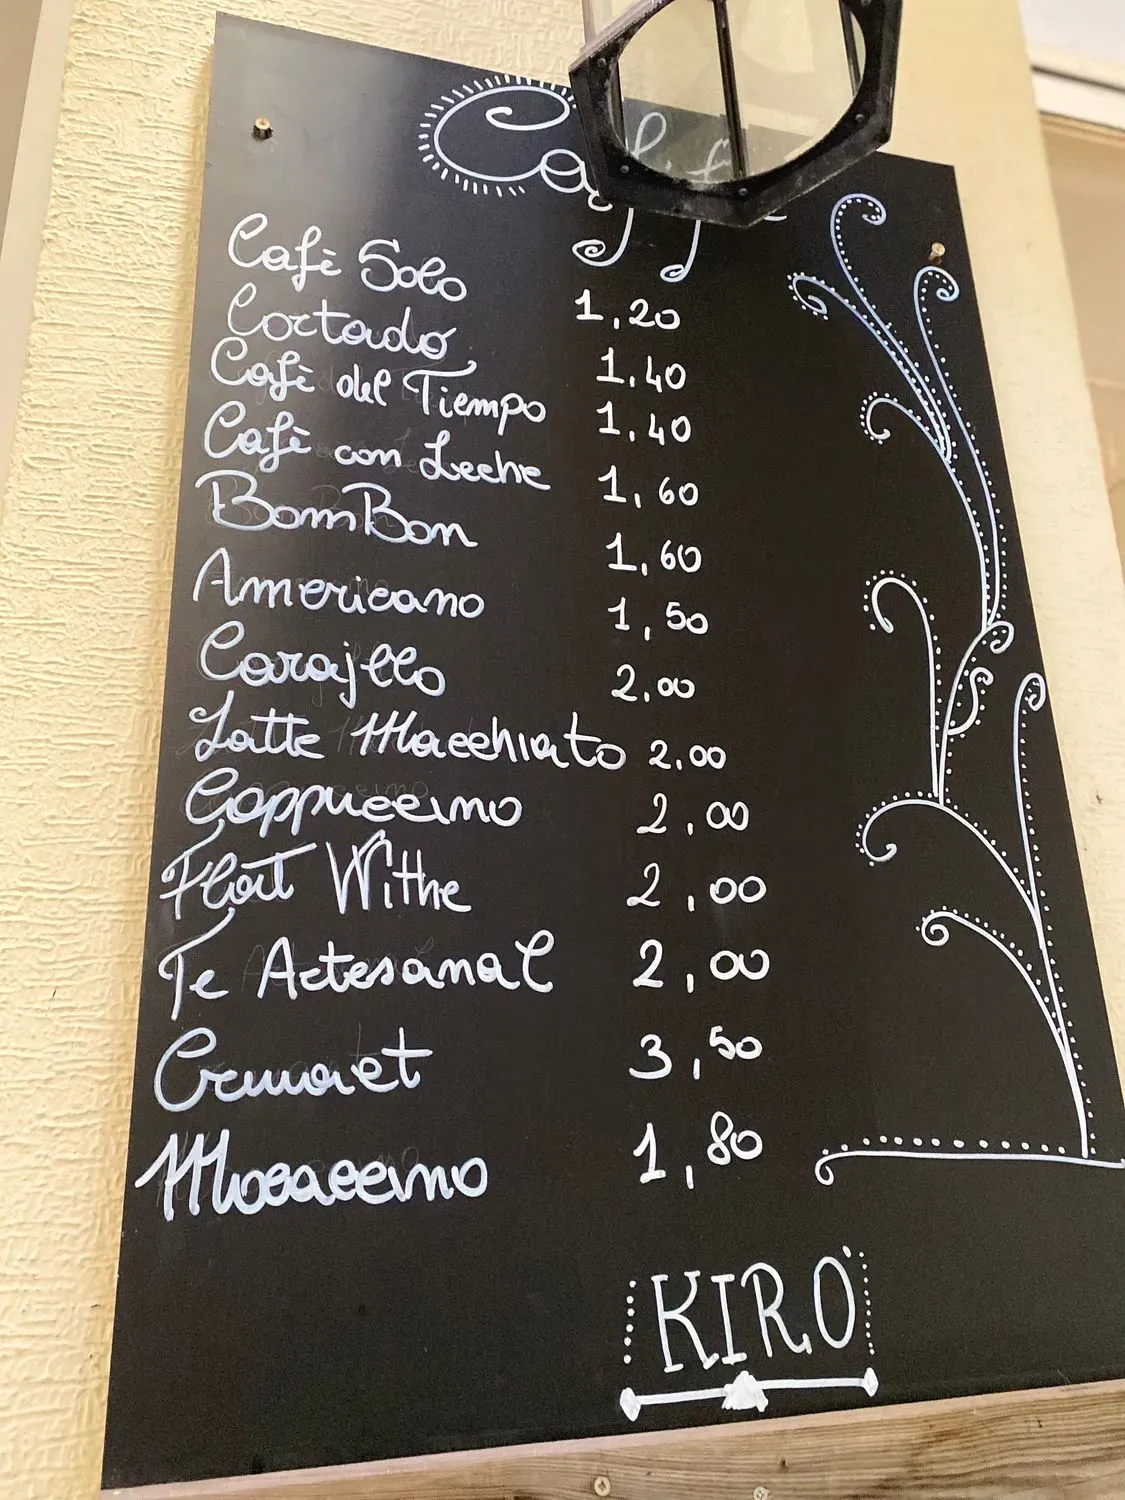 Caffe
Cafè Solo 1,20
Cortado 1,40
Cafè del Tiempo 1,40
Cafè con Leche 1,60
BomBon 1,60
Americano 1,50
Carajllo 2,00
Latte Macchiato 2,00
Cappuccino 2,00
Flait Withe 2,00
Te Artesanal 2,00
Cremaet 3,50
Mocaccino 1,80
KIRO